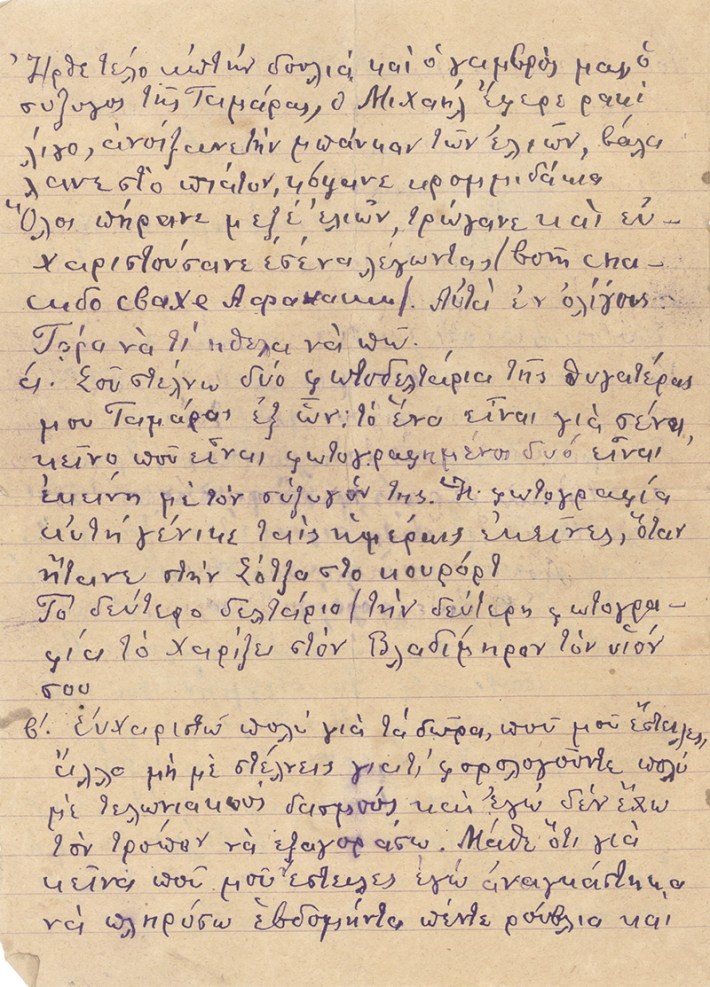 Ἦρθε τέλο κἀπτὴν δουλιά καὶ ὁ γαμβρὸς μας, ὁ
σύζυγος τῆς Ταμάρας, ὁ Μιχαὴλ ἔφερε ρακί
λίγο, ἀνοίξανε τὴν μπάνκαν τῶν ἐλιῶν, βάλα
λανε στὸ πιάτον, κόψανε κρομμιδάκια
Ὅλοι πήρανε μεζέ ἐλιῶν, τρώγανε καὶ εὐ-
χαριστούσανε ἐσένα λέγωντας/вотъ спа-
сибо сваха Афанаки/. Αὐτὰ ἐν ὀλίγοις.
Τόρα νὰ τί ἤθελα νὰ πῶ.
ά. Σοῦ στέλνω δύο φωτοδελτάρια τῆς θυγατέρας
μου Ταμάρας ἐξ ὧν: τὸ ἕνα εἶναι γιὰ σένα,
κεῖνο ποῦ εἶναι φωτογραφημένοι δυό εἶναι
ἐκείνη μὲ τὸν σύζυγόν της. Ἡ φωτογραφία
αὐτὴ γένικε ταὶς ἡμέραις ἐκεῖνες, ὅταν
ἤτανε στὴν Σότζα στο κουρόρτ
Τὸ δεύτερο δελτάριο/τὴν δεύτερη φωτογρα-
φία τὸ χαρίζει στὸν Βλαδίμηρον τὸν υἱόν
σου
β'. Εὐχαριστῶ πολύ γιὰ τὰ δῶρα, ποῦ μοῦ ἔστειλες,
ἄλλα μὴ μὲ στέλνεις γιατί φορολογοῦντε πολύ
μὲ τελωνιακούς δασμούς καὶ ἐγώ δέν ἔχω
τὸν τρόπον νὰ ἐξαγοράσω. Μάθε ὅτι γιὰ
κεῖνα ποῦ μοῦ ἔστειλες ἐγώ ἀναγκάστηκα
νὰ πληρώσω ἑβδομήντα πέντε ρούβλια καὶ